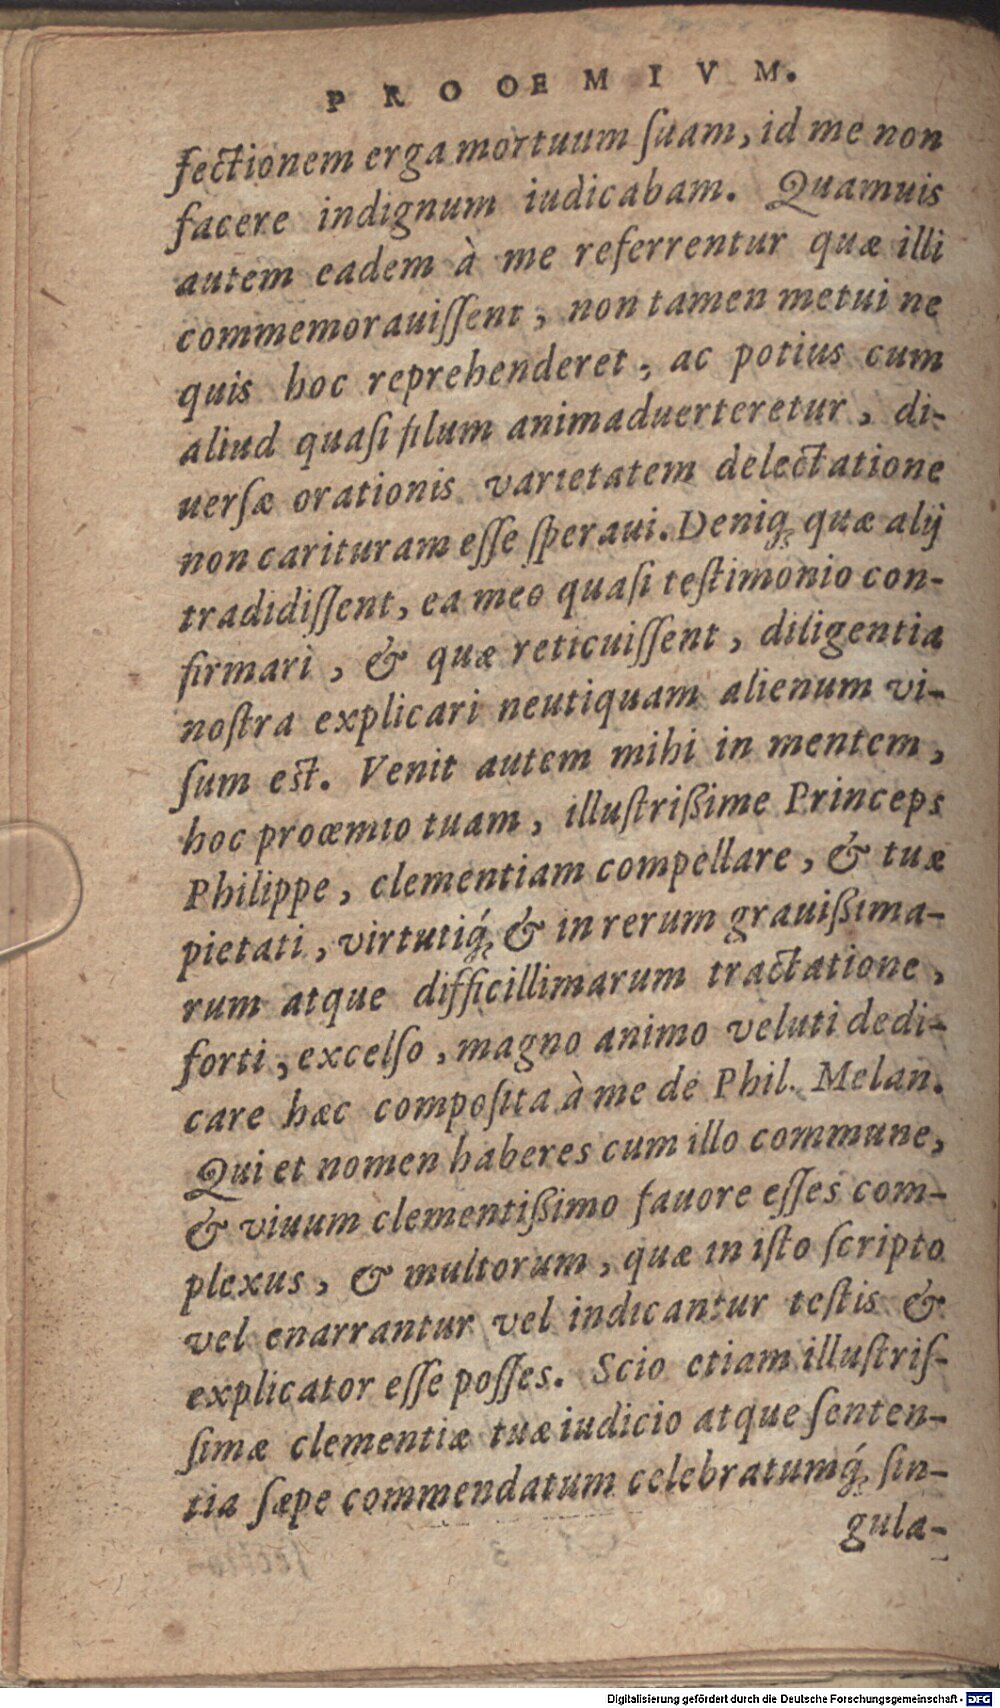 PROOEMIVM.
fectionem erga mortuum ſuam, id me non
facere indignum iudicabam. Quamuis
autem eadem à me referrentur quæ illi
commemorauiſſent, non tamen metui ne
quis hoc reprehenderet, ac potius cum
aliud quaſi filum animaduerteretur, di-
uerſæ orationis varietatem delectatione
non carituram eſſe ſperaui. Deniq; quæ alij
tradidiſſent, ea meo quaſi teſtimonio con-
firmari, & quæ reticuiſſent, diligentia
noſtra explicari neutiquam alienum vi-
ſum eſt. Venit autem mihi in mentem,
hoc proœmio tuam, illuſtrißime Princeps
Philippe, clementiam compellare, & tuæ
pietati, virtutiq́; & in rerum grauißima-
rum atque difficillimarum tractatione,
forti, excelſo, magno animo veluti dedi-
care hæc compoſita à me de Phil. Melan.
Qui et nomen haberes cum illo commune,
& viuum clementißimo fauore eſſes com-
plexus, & multorum, quæ in iſto ſcripto
vel enarrantur vel indicantur teſtis &
explicator eſſe poſſes. Scio etiam illuſtriſ-
ſimæ clementiæ tuæ iudicio atque ſenten-
tia ſæpe commendatum celebratumq́; ſin-
gula-
Digitalisierung gefördert durch die Deutsche Forschungsgemeinschaft - DFG